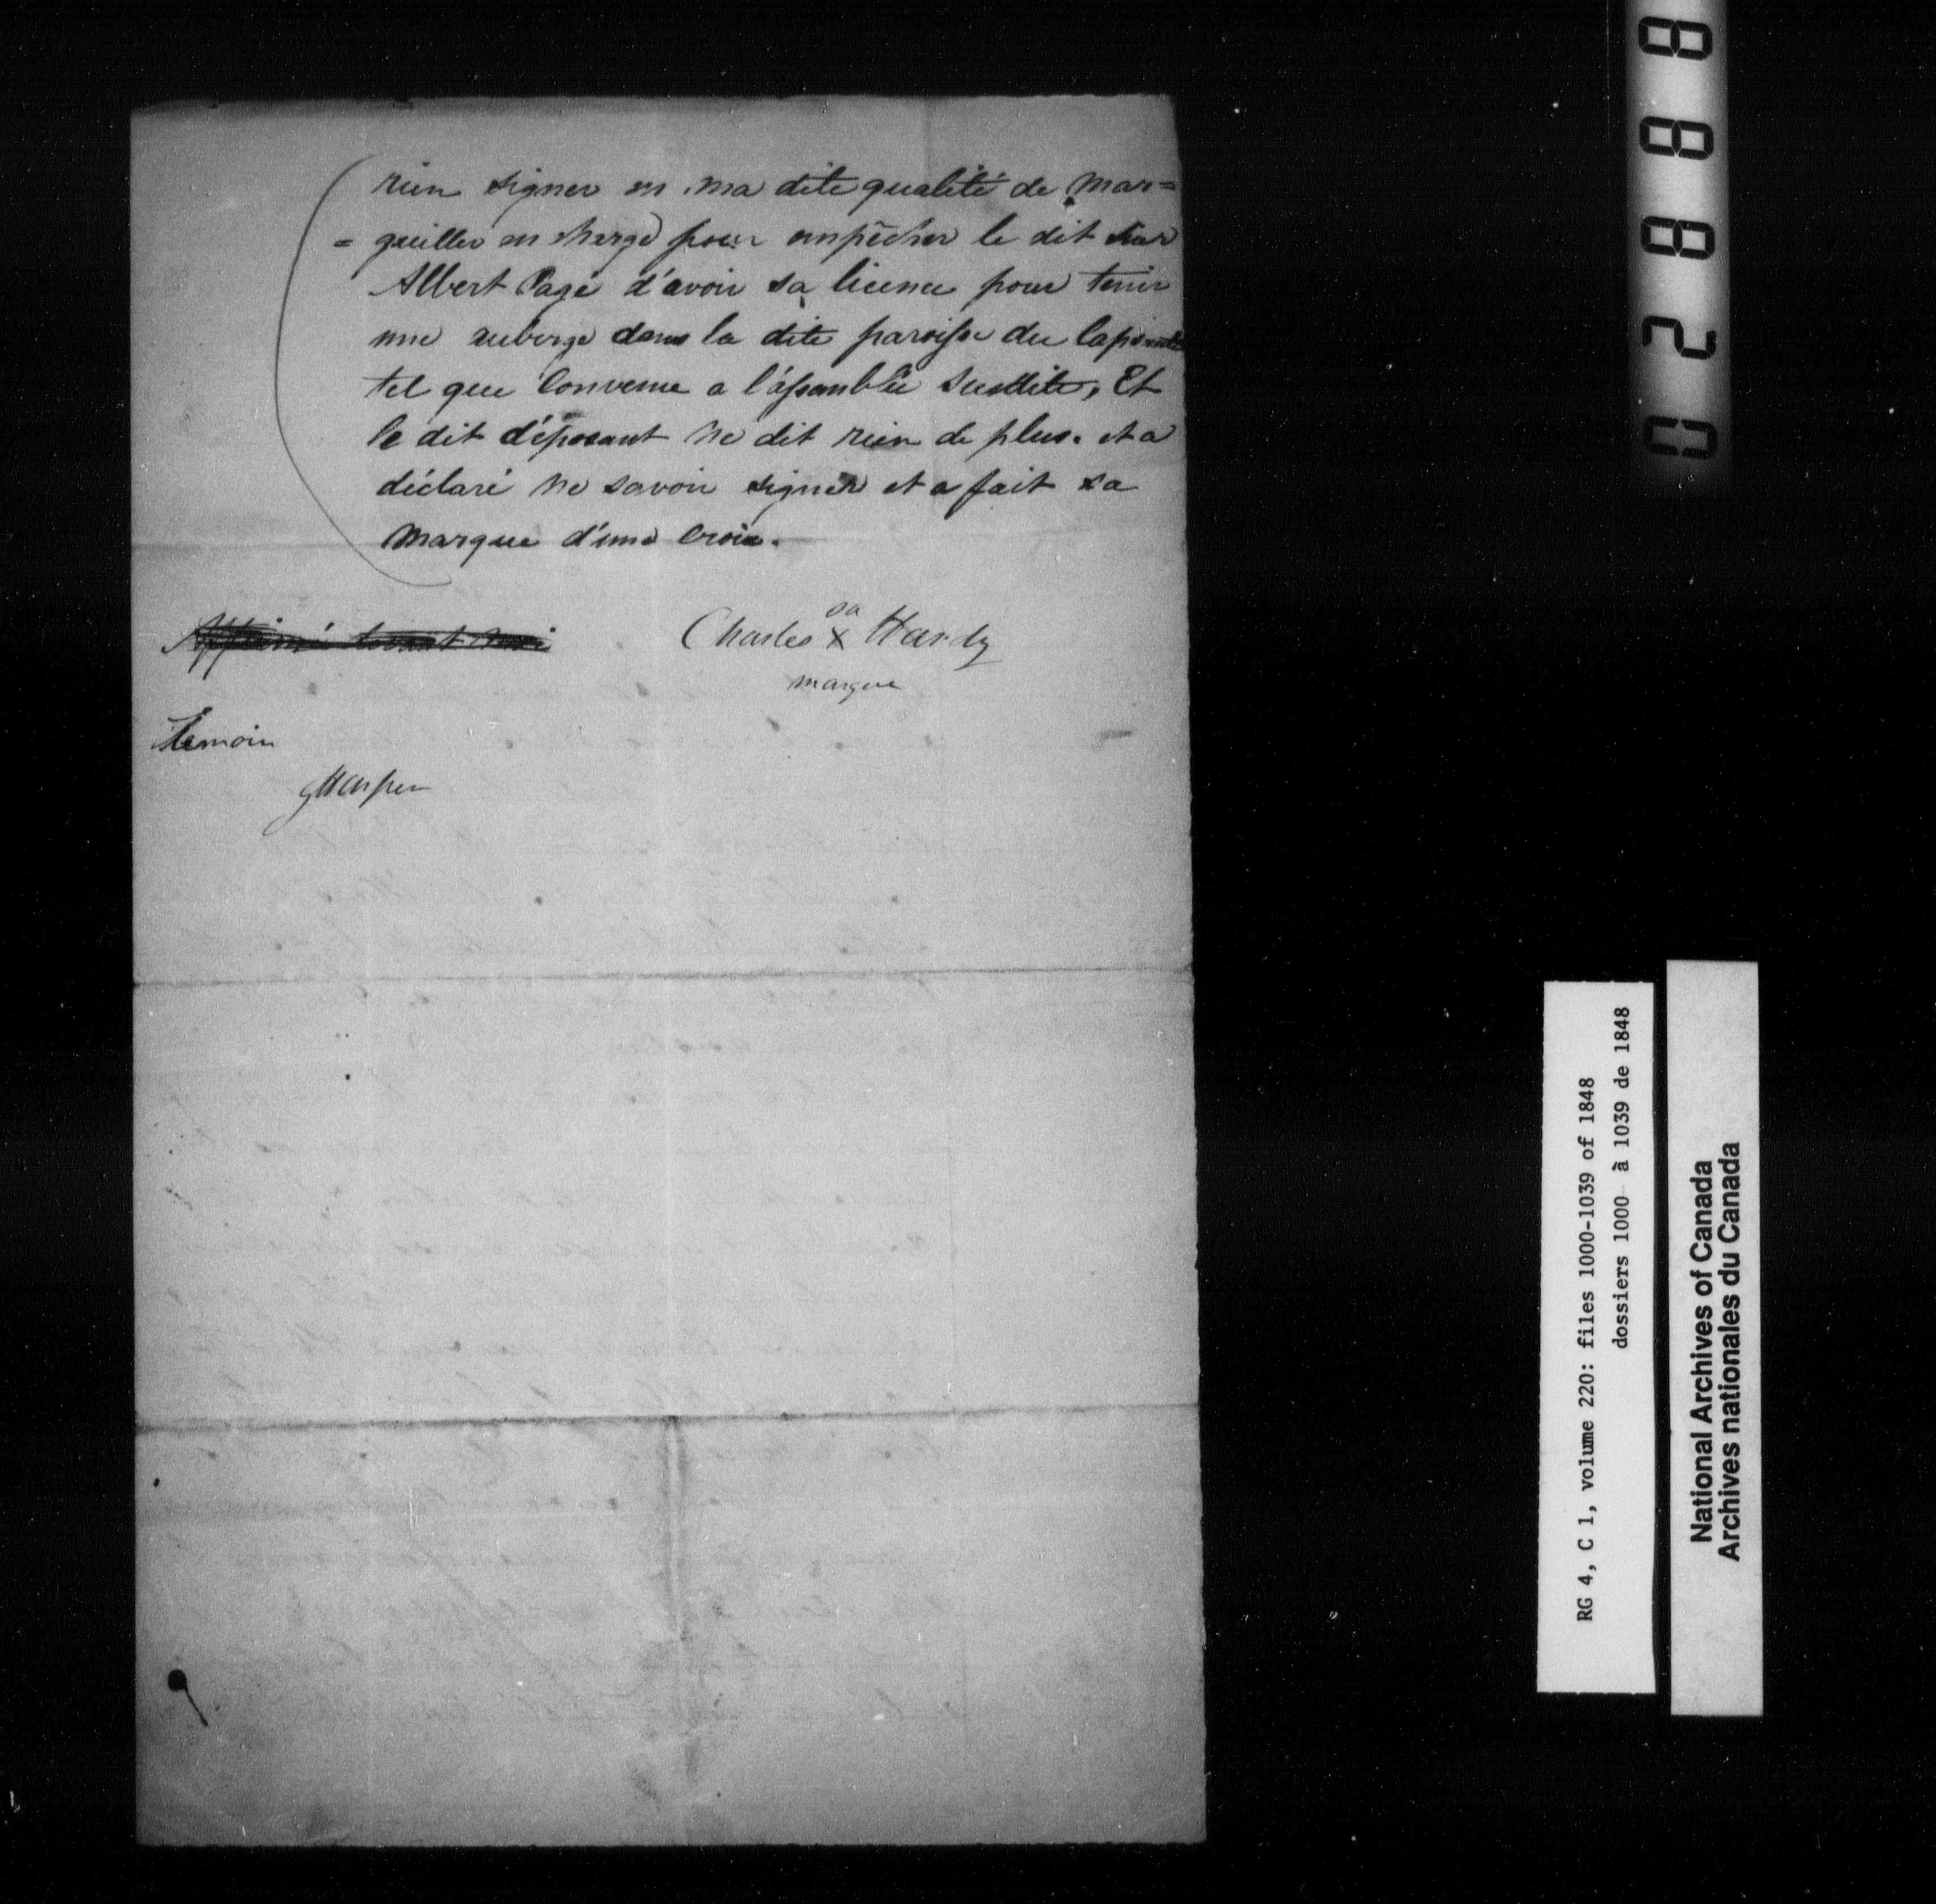 rien signer en ma dite qualité de Mar=
= guiller en charge pour empêcher le dit
Albert Pagé d'avoir sa licence pour tenir
une auberge dans la dite paroisse du Cap
tel que Convenue a l'assemblée Susdite, Et
le dit déposant ne dit rien de plus. et a
déclaré ne savoir signer et a fait sa
marque d'une Croix.
Affirmé devant moi
sa
Charles X Hardy
marque
Témoin
Harper
02888
RG 4, C 1, volume 220: files 1000-1039 of 1848
dossiers 1000 à 1039 de 1848
National Archives of Canada
Archives nationales du Canada